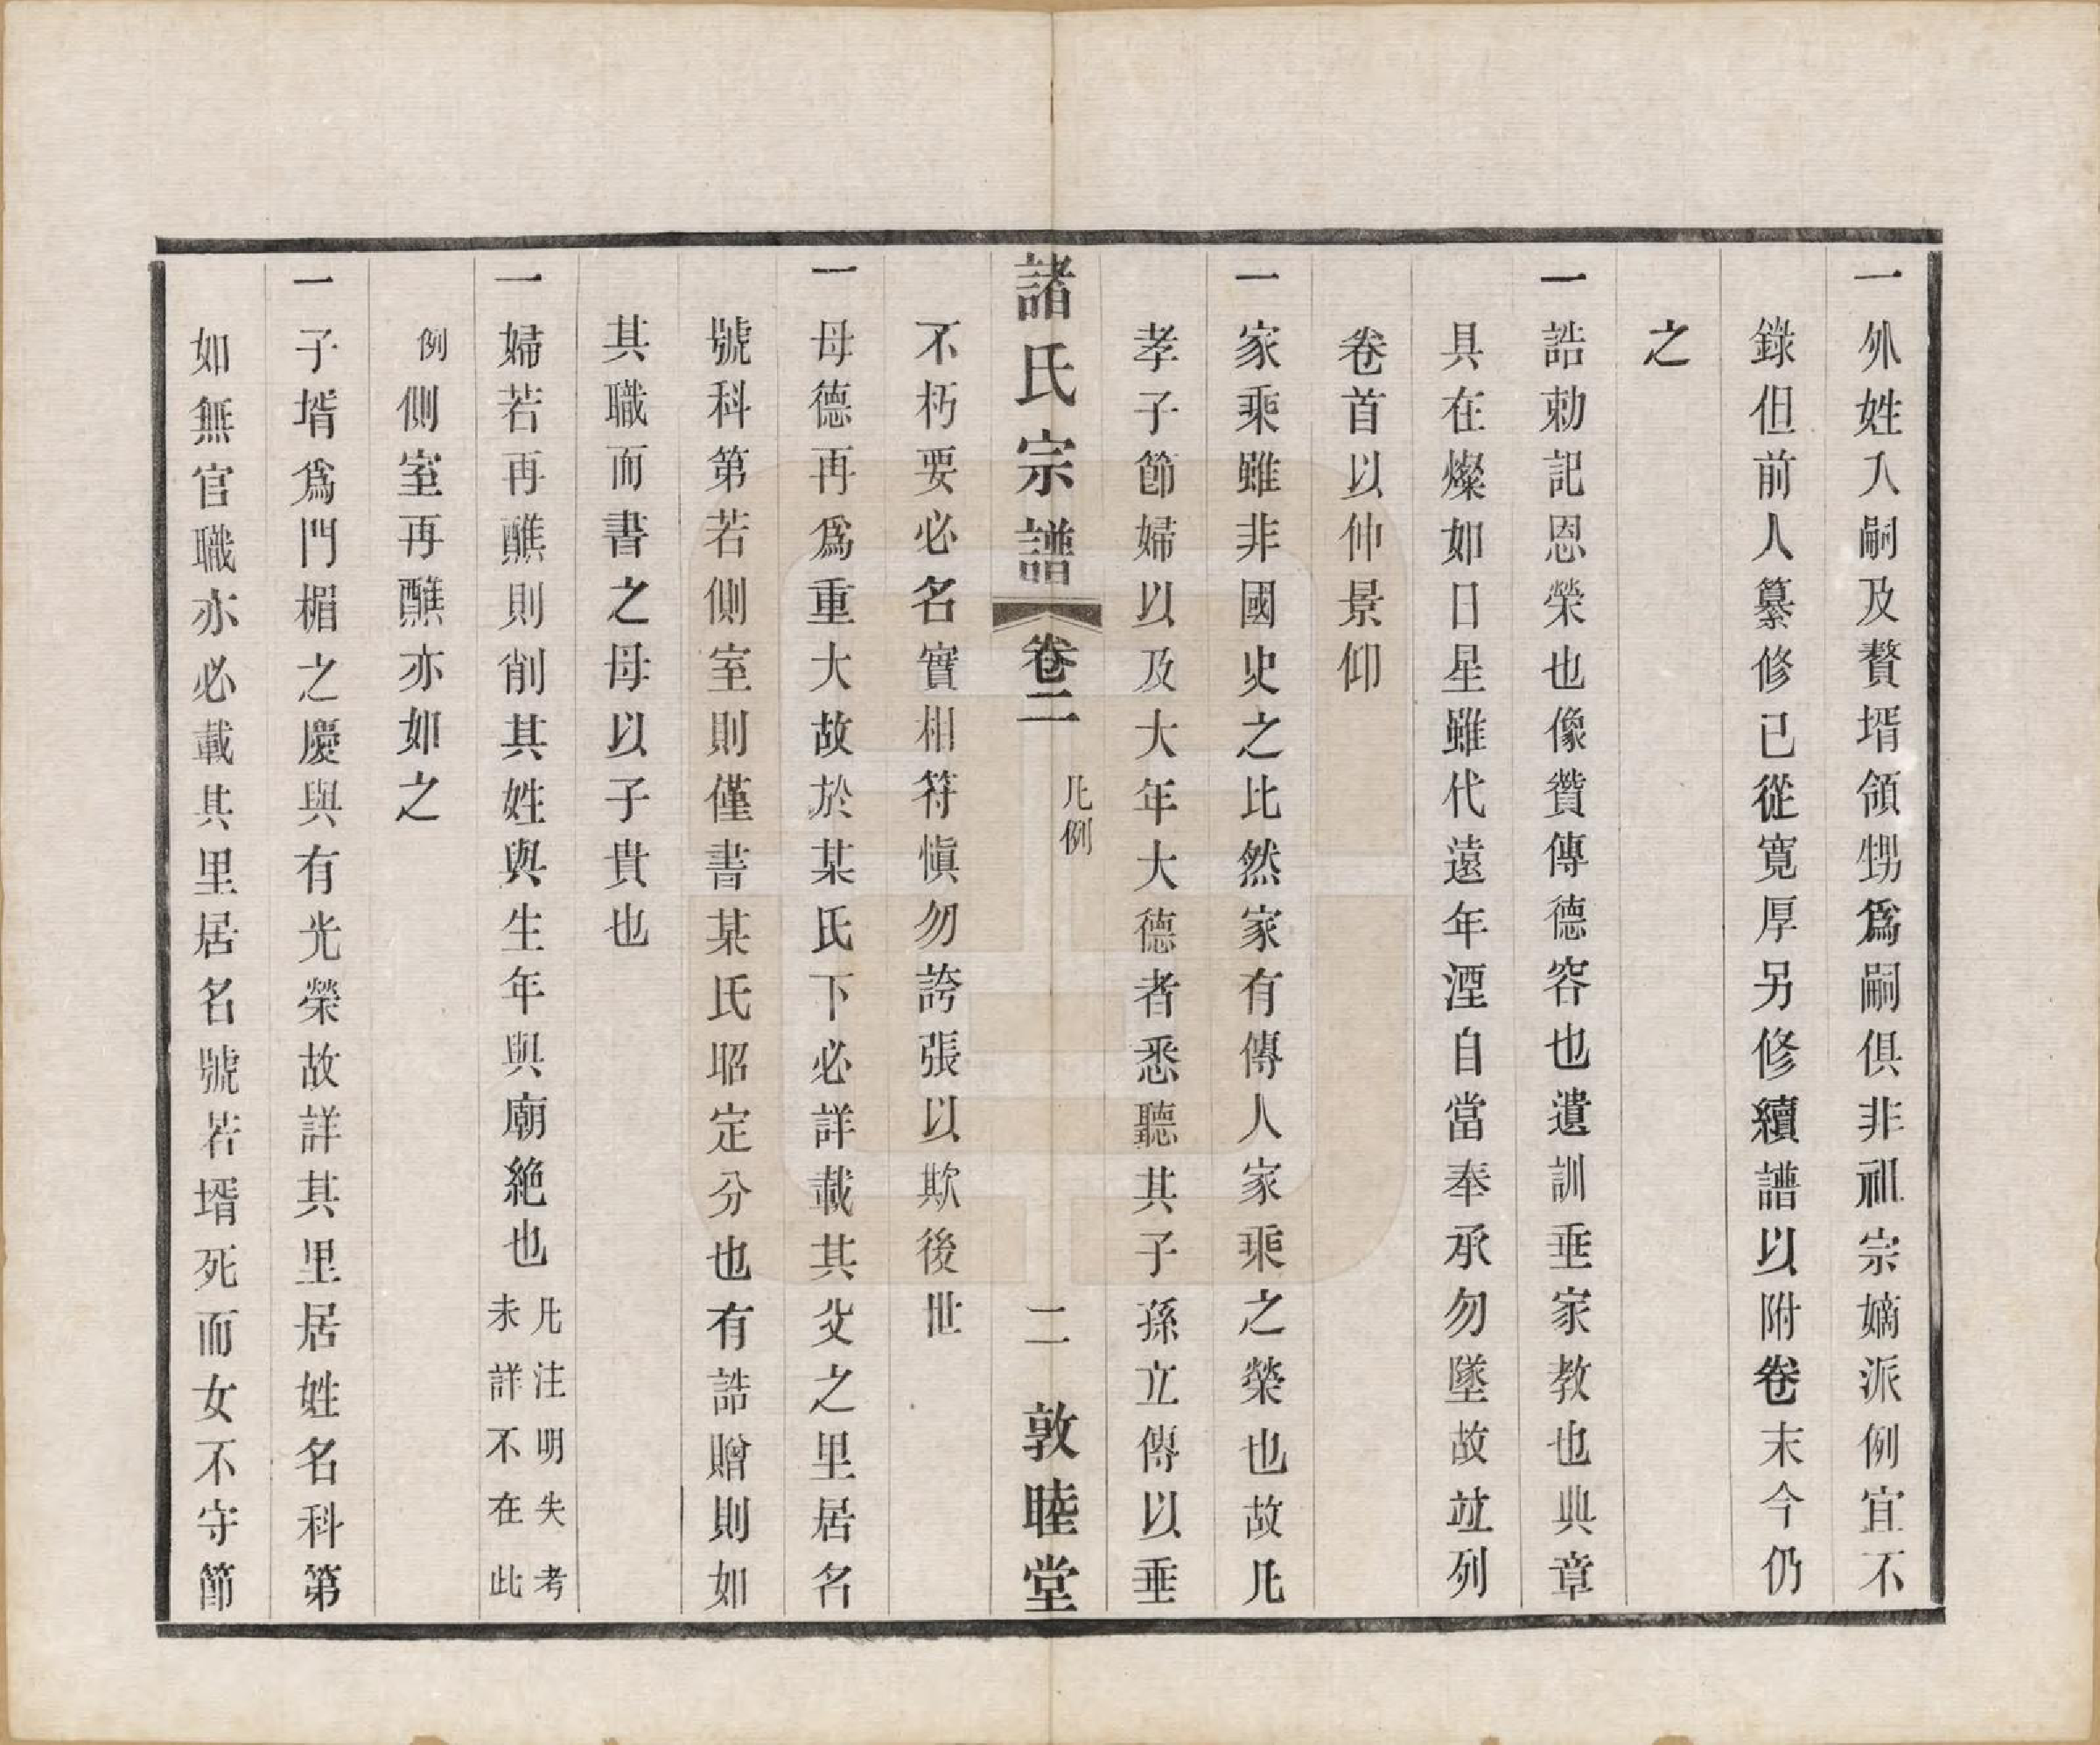 一外姓入嗣及贅壻領甥爲嗣俱非祖宗嫡派例宜不
錄但前人纂修已從寬厚另修續譜以附卷末今仍
之
一誥勅記恩榮也像贊傳德容也遺訓垂家教也典章
具在燦如日星雖代遠年湮自當奉承勿墜故竝列
卷首以伸景仰
一家乘雖非國史之比然家有傳人家乘之榮也故凡
孝子節婦以及大年大德者悉聽其子孫立傳以垂
諸氏宗譜 卷二 凡例 二 敦睦堂
不朽要必名實相符愼勿誇張以欺後世
一母德再爲重大故於某氏下必詳載其父之里居名
號科第若側室則僅書某氏昭定分也有誥贈則如
其職而書之母以子貴也
一婦若再醮則削其姓與生年與廟絶也凡注明失考
未詳不在此
例側室再醮亦如之
一子壻爲門楣之慶與有光榮故詳其里居姓名科第
如無官職亦必載其里居名號若壻死而女不守節